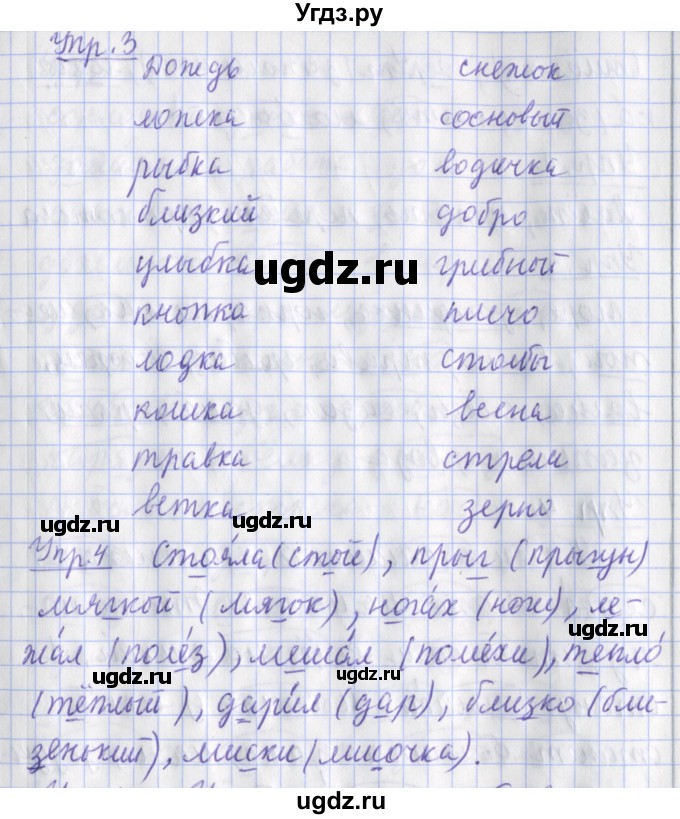 Угдз.ру
Упр. 3
Дождь снежок
ложка сосновый
рыбка водичка
близкий добро
улыбка грибной
ugdz.ru
кнопка плечо
лодка столбы
кошка весна
травка стрела
ветка зерно
ugdz.ru ugdz.ru
Упр. 4 Стоя́ла (стой), прыг (прыгун)
мягкой (мягок), нога́х (ноги), ле-
ugdz.ru
жа́л (поле́з), меша́л (поме́хи), тепло́
ugdz.ru
(тёплый), дари́л (дар), близко (бли-
зенький), миски (мисочка).
ugdz.ru